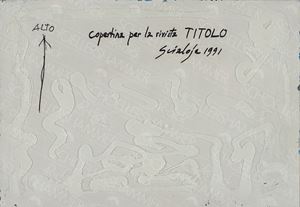 ALTO
copertina per la rivista TITOLO
Scialoja 1991